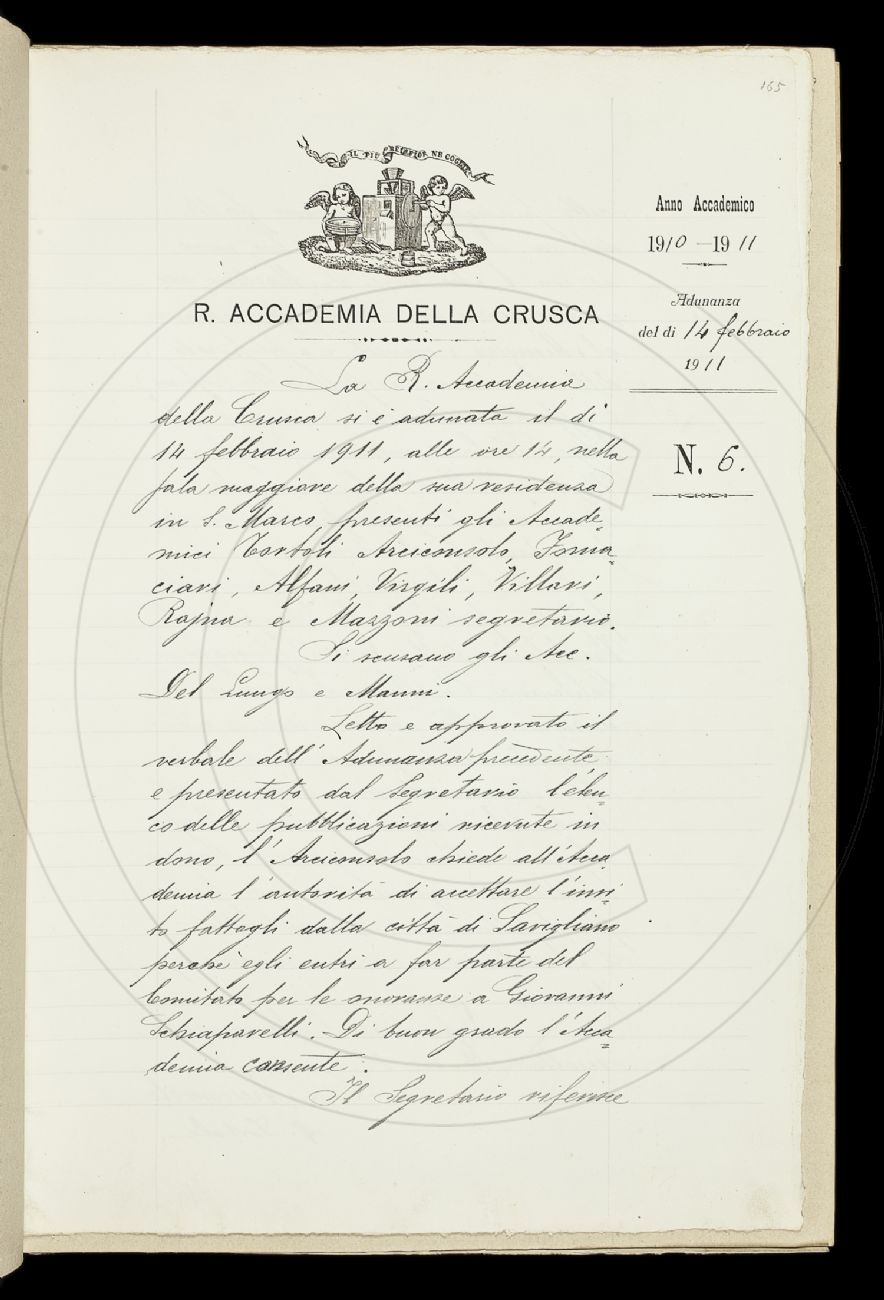 165
IL PIÙ BEL FIOR NE COGLIE
R. ACCADEMIA DELLA CRUSCA
Anno Accademico
1910 - 1911
Adunanza
del dì 14 febbraio
1911
N. 6.
La R. Accademia
della Crusca si è adunata il dì
14 febbraio 1911, alle ore 14, nella
sala maggiore della sua residenza
in S. Marco, presenti gli Accade-
mici Tortoli Arciconsolo, Forna=
ciari, Alfani, Virgili, Villari,
Rajna e Mazzoni segretario.
Si scusano gli Acc.
Del Lungo e Manni.
Letto e approvato il
verbale dell'Adunanza precedente,
e presentato dal Segretario l'elen=
co delle pubblicazioni ricevute in
dono, l'Arciconsolo chiede all'Acca=
demia l'autorità di accettare l'invi=
to fattogli dalla città di Savigliano
perchè egli entri a far parte del
Comitato per le onoranze a Giovanni
Schiaparelli. Di buon grado l'Acca=
demia consente.
Il Segretario riferisce